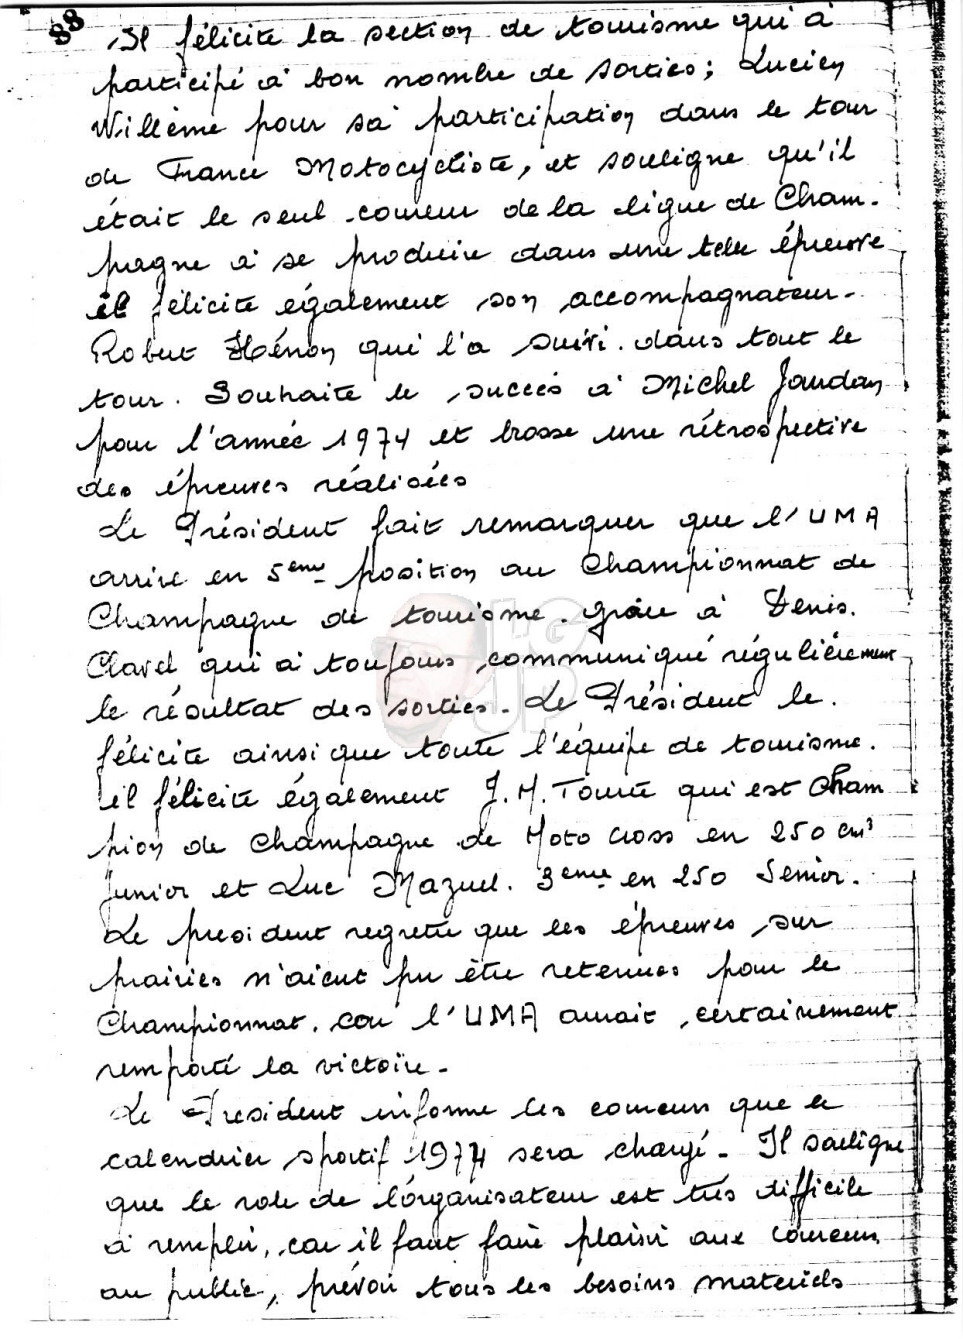 88
Il félicite la section de tourisme qui a
participé à bon nombre de sorties ; Lucien
Willème pour sa participation dans le tour
de France Motocycliste, et souligne qu'il
était le seul coureur de la ligue de Cham-
pagne à se produire dans une telle épreuve
il félicite également son accompagnateur.
Robert Hénon qui l'a suivi. dans tout le
tour. Souhaite le succès à Michel Jourdan
pour l'année 1974 et brosse une rétrospective
des épreuves réalisées
Le Président fait remarquer que l'UMA
arrive en 5eme position au Championnat de
Champagne de tourisme. grâce à Denis.
Clavel qui a toujours communiqué régulièrement
le résultat des sorties. Le Président le.
félicite ainsi que toute l'équipe de tourisme.
il félicite également J.M. Tourte qui est Cham
pion de Champagne de Moto cross en 250 cm3
junior et Luc Mazuel. 3eme en 250 Senior.
Le president regrette que les épreuves sur
prairies n'aient pu être retenues pour le
Championnat. car l'UMA aurait certainement
remporté la victoire.
Le President informe les coureurs que le
calendrier sportif 1974 sera chargé. Il souligne
que le role de l'organisateur est très difficile
à remplir, car il faut faire plaisir aux coureurs,
au public, prévoir tous les besoins materiels
LG
JP